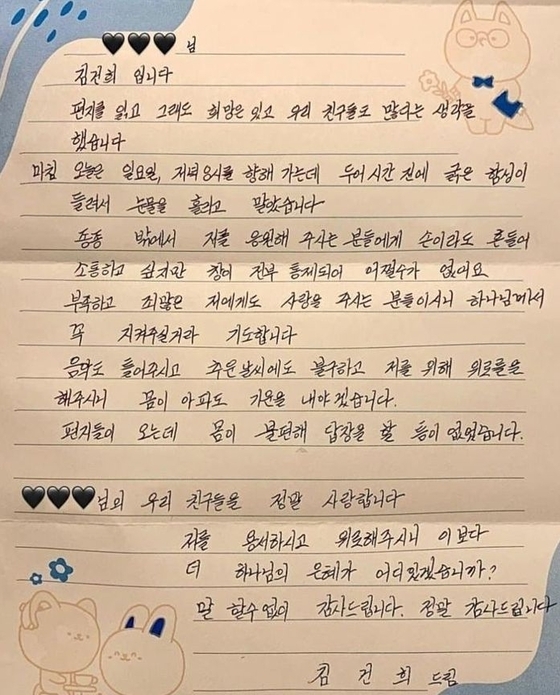 🖤🖤🖤 님
김건희 입니다
편지를 읽고 그래도 희망은 있고 우리 친구들도 많다는 생각을
했습니다
마침 오늘은 일요일, 저녁 8시를 향해 가는데 두어 시간 전에 굵은 함성이
들려서 눈물을 흘리고 말았습니다
종종 밖에서 저를 응원해 주시는 분들에게 손이라도 흔들어
소통하고 싶지만 창이 전부 통제되어 어쩔수가 없어요
부족하고 죄많은 저에게도 사랑을 주시는 분들이시니 하나님께서
꼭 지켜주실거라 기도합니다
음악도 틀어주시고 추운날씨에도 불구하고 저를 위해 위로들을
해주시니 몸이 아파도 기운을 내야겠습니다.
편지들이 오는데 몸이 불편해 답장을 할 틈이 없었습니다.
🖤🖤🖤님의 우리 친구들을 정말 사랑합니다
저를 용서하시고 위로해주시니 이보다
더 하나님의 은혜가 어디있겠습니까?
말 할수없이 감사드립니다. 정말 감사드립니다
김 건 희 드림